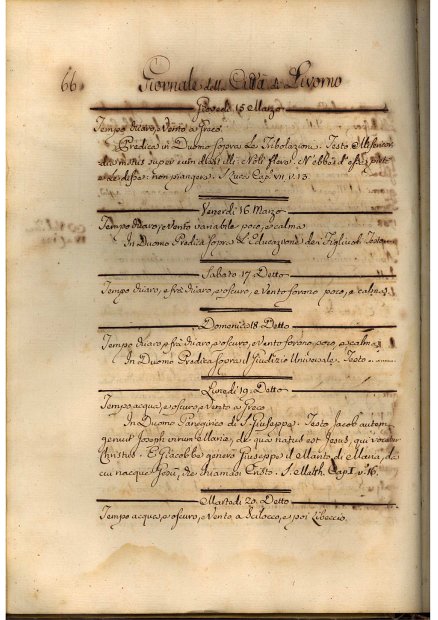 66.
Giornale della Città di Livorno
Giovedì 15 Marzo
Tempo chiaro, e Vento a Greco.
Predica in Duomo sopra le Tribolazioni. Testo Misericor-
dia motus super eam dixit illi: Noli flere. N'ebbe d'essa pietà
e le disse: non piangere. S. Luca Cap. VII. v. 13.
Venerdì 16. Marzo
Tempo chiaro, e Vento variabile poco, e calma
In Duomo Predica sopra l'Educazione dei Figliuoli Testo
Sabato 17 Detto
Tempo chiaro, e fra chiaro, e oscuro, e Vento forano poco, e calma
Domenica 18. Detto
Tempo chiaro, e fra chiaro, e oscuro, e Vento forano, poco, e calma
In Duomo Predica sopra il Giudizio Universale. Testo
Lunedì 19. Detto
Tempo acqua, e oscuro, e Vento a Greco
In Duomo Panegirico di S. Giuseppe. Testo Jacob autem
genuit Joseph virum Mariæ, de qua natus est Jesus, qui vocatur
Christus. E Giacobbe generò Giuseppe il Marito di Maria, da
cui nacque Gesù, che chiamasi Cristo. S. Matth. Cap. I. v. 16.
Martedì 20. Detto
Tempo acqua, e oscuro, e Vento a Scilocco, e poi Libeccio.